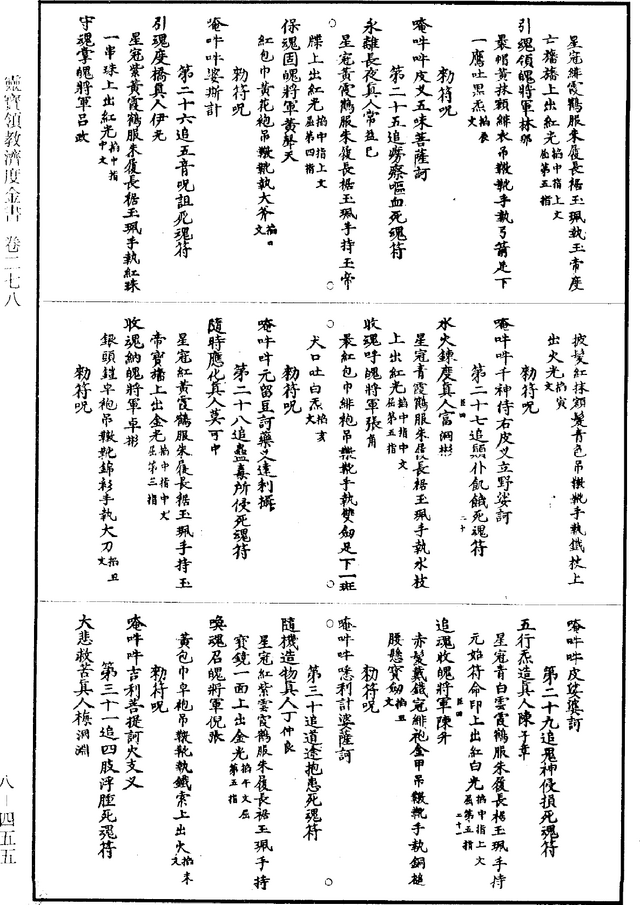 星冠緋霞鶴服朱履長裾玉珮執玉帝度
亡旛旛上出紅光掐中指上文屈第五指
引魂領魄將軍林郍
最帽黃抹額緋衣吊䩺靴手執弓箭足下
一鷹吐黑炁掐辰文
勑符呪
唵吽吽皮义五味菩薩訶
第二十五追癆瘵嘔血死魂符
永離長夜真人常益巳
星冠黃霞鶴服朱履長裾玉珮手持玉帝
牒上出紅光掐中指上文屈第四指
保魂固魄將軍黃昇天
紅包巾黃花袍吊䩺靴執大斧掐田文
勑符呪
唵吽吽婆斯計
第二十六追五音呪詛死魂符
引魂度橋真人伊元
星冠紫黃霞鶴服朱履長裾玉珮手執紅珠
一串珠上出紅光掐中指中文
守魂掌魄將軍呂政
披髮紅抹額髮青色吊䩺靴手執鐵杖上
出火光掐寅文
勑符呪
唵吽吽千神侍右皮义立野娑訶
第二十七追顛仆飢餓死魂符
水火鍊度真人富洞彬
星冠青霞鶴服朱履長裾玉珮手執水枝
上出紅光掐中指中文屈第五指
收魂呼魄將軍張角
最紅包巾緋袍吊䩺靴手執雙劒足下一斑
犬口吐白炁掐亥文
勑符呪
唵吽吽元留豆訶藥义達利攝
第二十八追蠱毒所侵死魂符
隨時應化真人莫可中
星冠紅黃霞鶴服朱履長裾玉珮手持玉
帝寶旛上出金光掐中指中文屈第三指
收魂納魄將軍卓彬
銀頭鍪皁袍吊䩺靴錦衫手執大刀掐丑文
勑符呪
唵吽吽皮娑婆訶
第二十九追鬼神侵損死魂符
五行炁造真人陳子章
星冠青白雲霞鶴服朱履長裾玉珮手持
元始符命印上出紅白光掐中指上文屈第五指
追魂收魄將軍陳升
赤髮戴鐵冠緋袍金甲吊䩺靴手執銅鎚
腰懸寶劒掐丑文
勑符呪
唵吽吽唵利計婆薩訶
第三十追道途抱患死魂符
隨機造物真人丁仲良
星冠紅紫雲霞鶴服朱履長裾玉珮手持
寶鏡一面上出金光掐午文屈第五指
喚魂召魄將軍倪張
黃包巾皁袍吊䩺靴執鐵索上出火掐未文
勑符呪
唵吽吽吉利菩提訶火支义
第三十一追四肢浮腫死魂符
大悲救苦真人梅洞淵
靈寶領教濟度金書 卷二七八
八－四五五